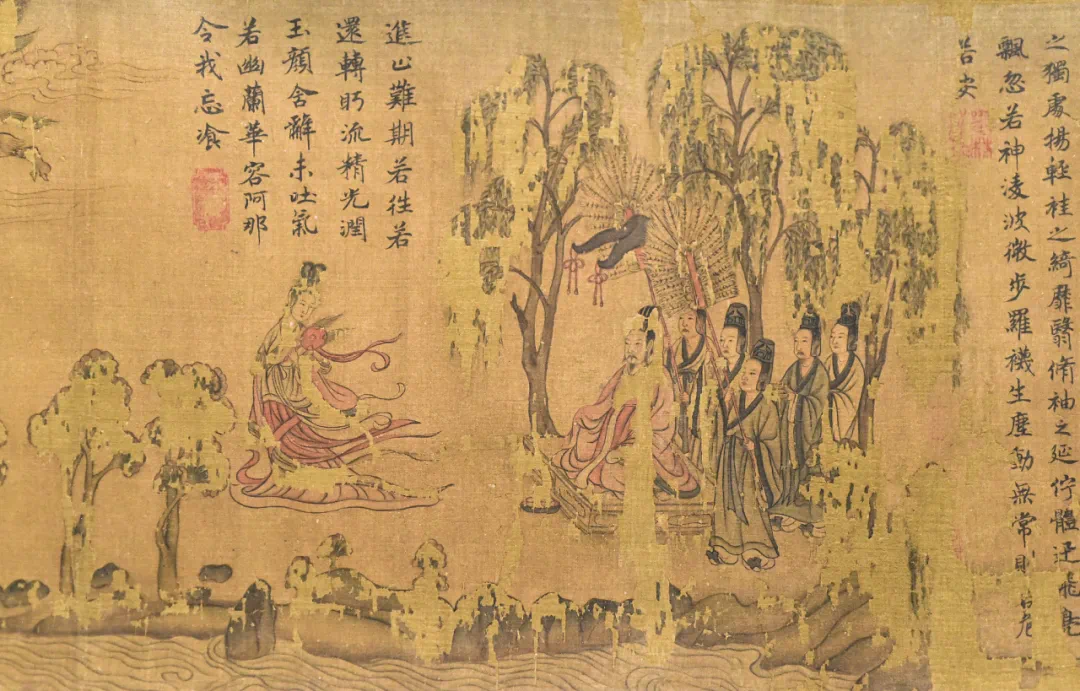 之獨處揚輕袿之綺靡翳脩袖之延佇體迅飛鳧
飄忽若神凌波微步羅襪生塵動無常則若危
若安
進止難期若往若
還轉眄流精光潤
玉顏含辭未吐氣
若幽蘭華容阿那
令我忘飡